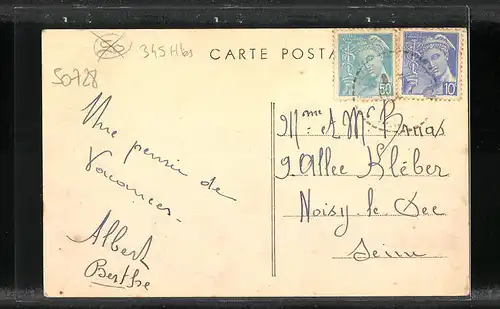 50
345Hbs
CARTE POSTA
50728
50
10
Une pensée de
Vacances-
Albert
Berthe
Mme et Mr Bruas
9 Allee Kléber
Noisy-le Sec
Seine